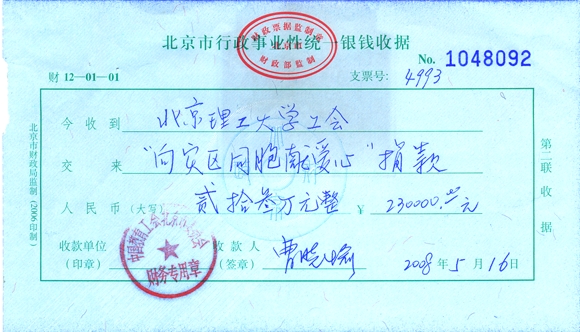 北京市行政事业性统一银钱收据
财政票据监制章
财政部监制
No. 1048092
财 12—01—01
支票号: 4993
今收到 北京理工大学工会
交来 "向灾区同胞献爱心"捐款
人民币 (大写) 贰拾叁万元整 ¥ 230000.00元
收款单位
(印章)
财务专用章
收款人
(签章)
2008年5月16日
北京市财政局监制(2006印制)
第二联收据